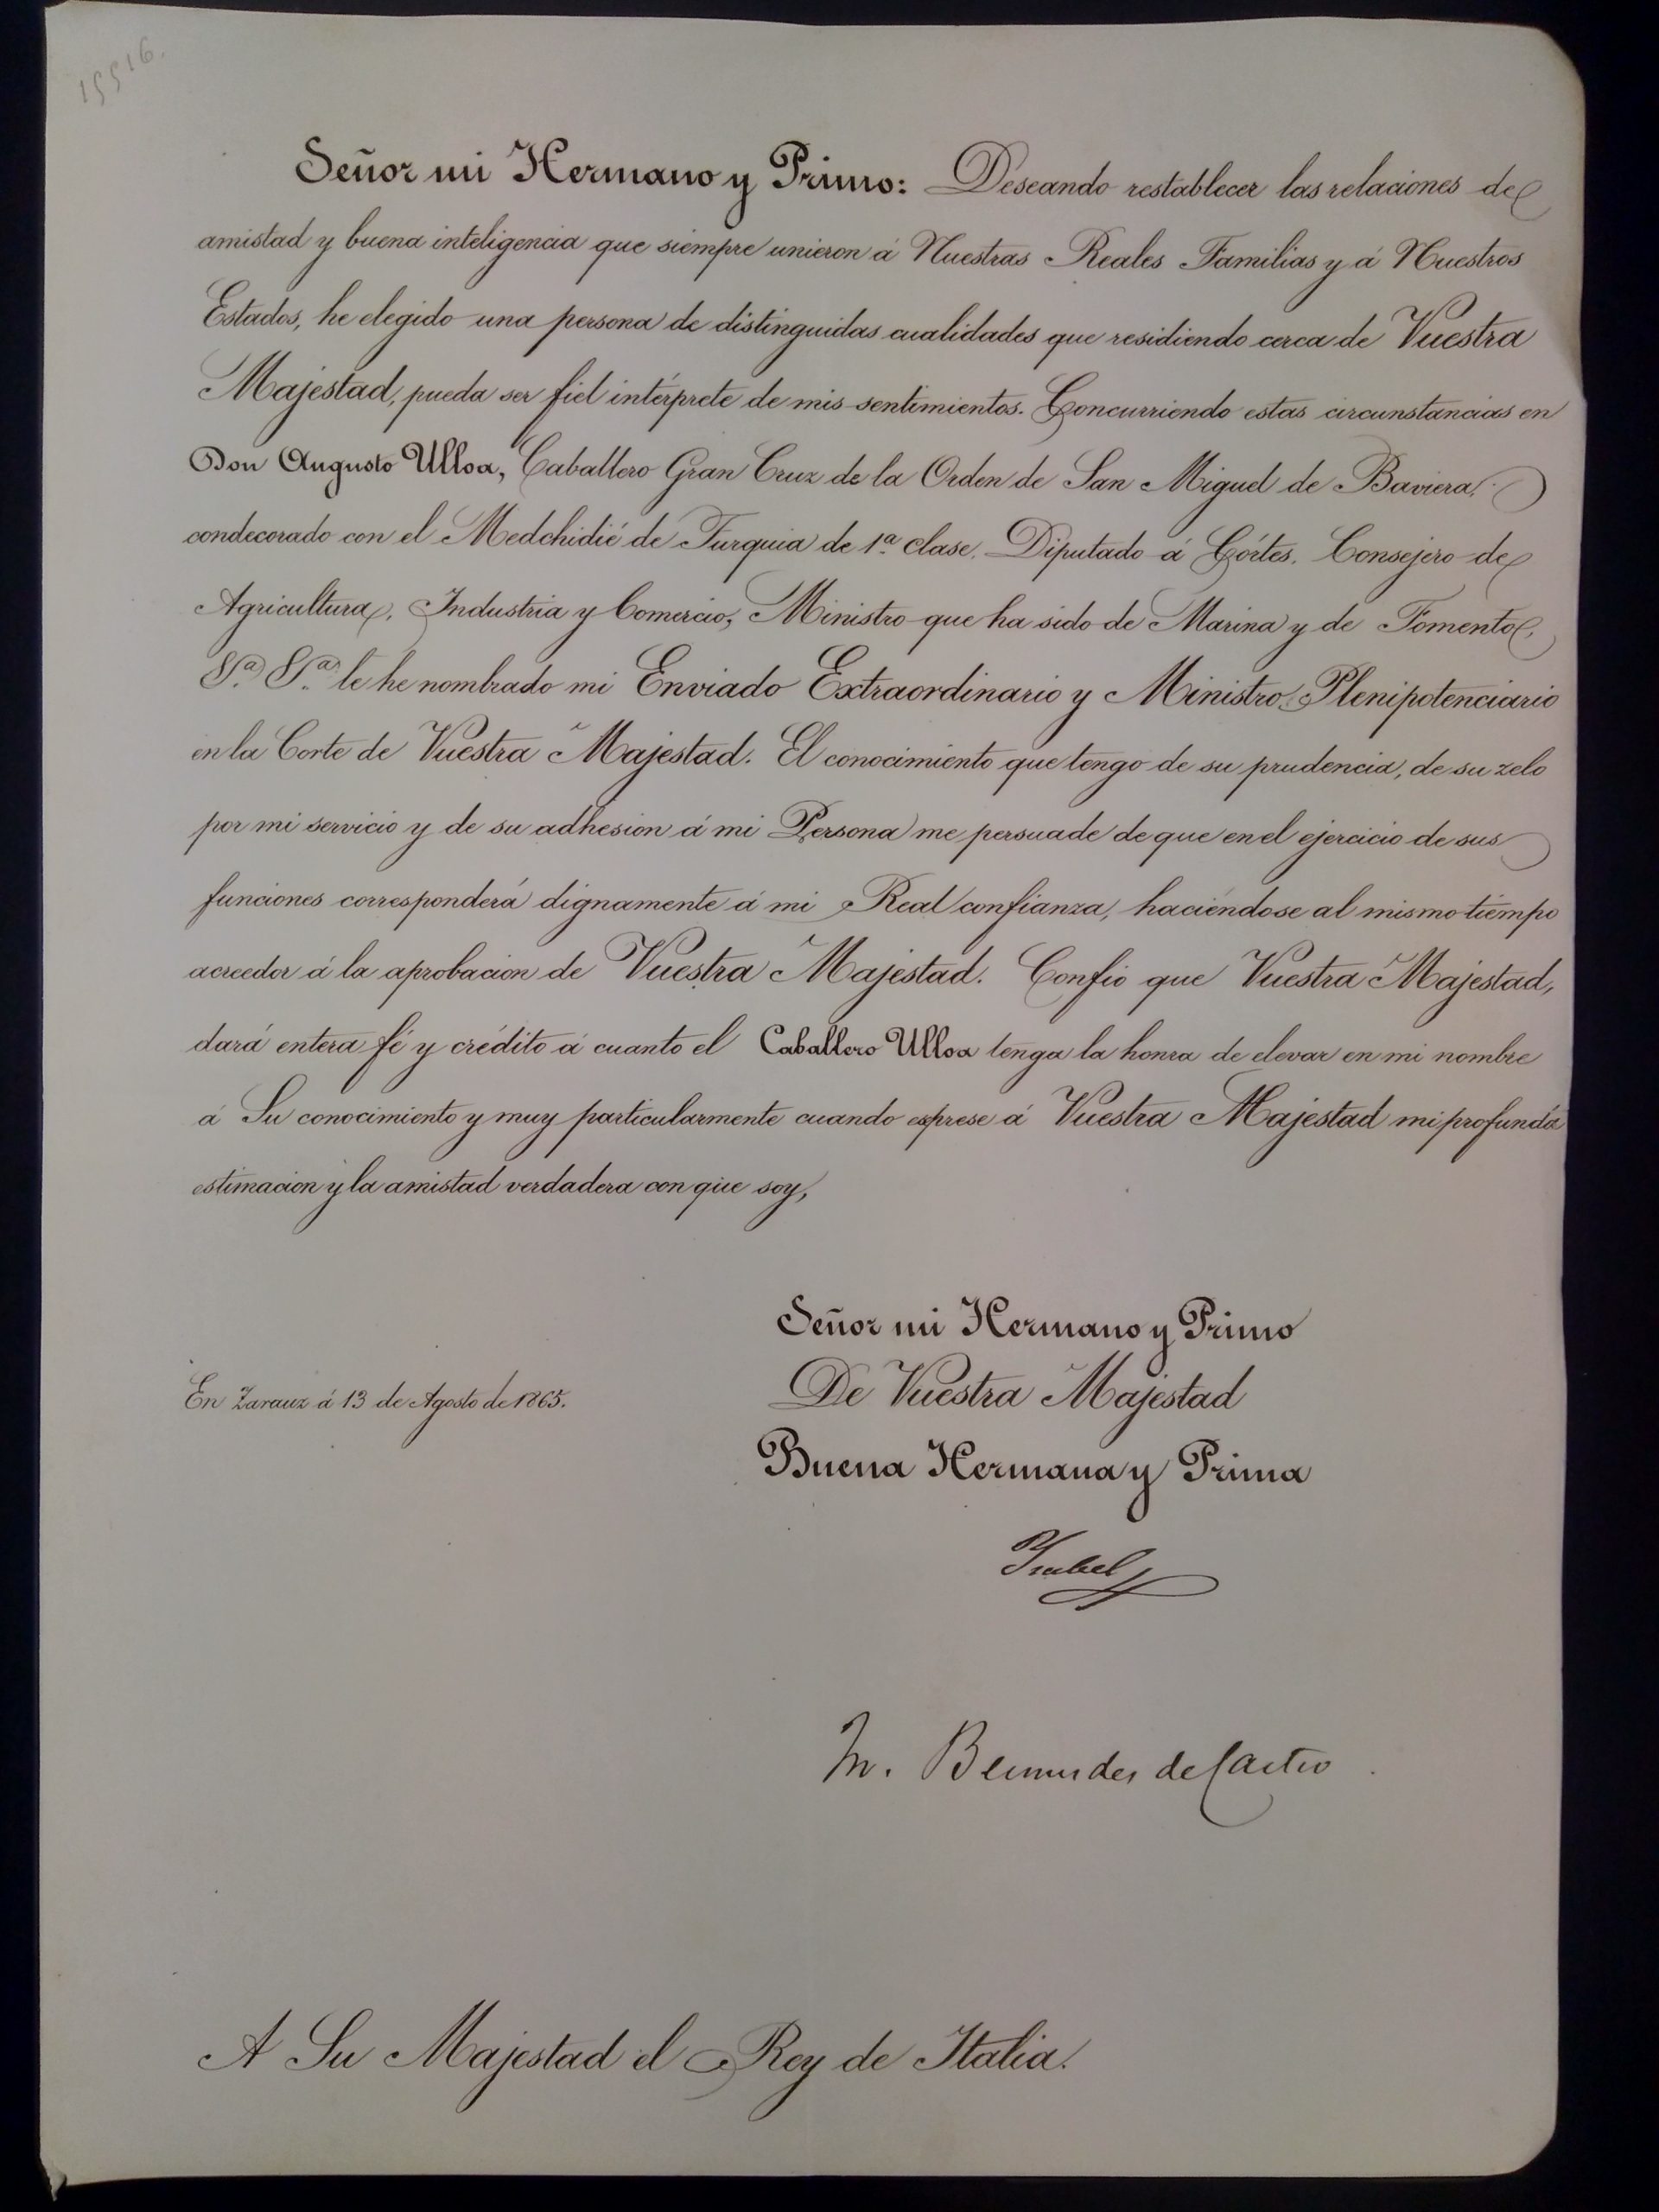 15516.
Señor mi Hermano y Primo: Deseando restablecer las relaciones de
amistad y buena inteligencia que siempre unieron á Nuestras Reales Familias y á Nuestros
Estados, he elegido una persona de distinguidas cualidades que residiendo cerca de Vuestra
Majestad, pueda ser fiel intérprete de mis sentimientos. Concurriendo estas circunstancias en
Don Augusto Ulloa, Caballero Gran Cruz de la Orden de San Miguel de Baviera,
condecorado con el Medchidié de Turquia de 1.ª clase, Diputado á Córtes, Consejero de
Agricultura, Industria y Comercio, Ministro que ha sido de Marina y de Fomento,
&.ª &.ª le he nombrado mi Enviado Extraordinario y Ministro Plenipotenciario
en la Corte de Vuestra Majestad. El conocimiento que tengo de su prudencia, de su zelo
por mi servicio y de su adhesion á mi Persona me persuade de que en el ejercicio de sus
funciones corresponderá dignamente á mi Real confianza, haciéndose al mismo tiempo
acreedor á la aprobacion de Vuestra Majestad. Confio que Vuestra Majestad,
dará entera fé y crédito á cuanto el Caballero Ulloa tenga la honra de elevar en mi nombre
á Su conocimiento y muy particularmente cuando esprese á Vuestra Majestad mi profunda
estimacion y la amistad verdadera con que soy,
Señor mi Hermano y Primo
De Vuestra Majestad
En Zarauz á 13 de Agosto de 1865.
Buena Hermana y Prima
Ysabel
M. Bermudez de Castro
A Su Majestad el Rey de Italia.